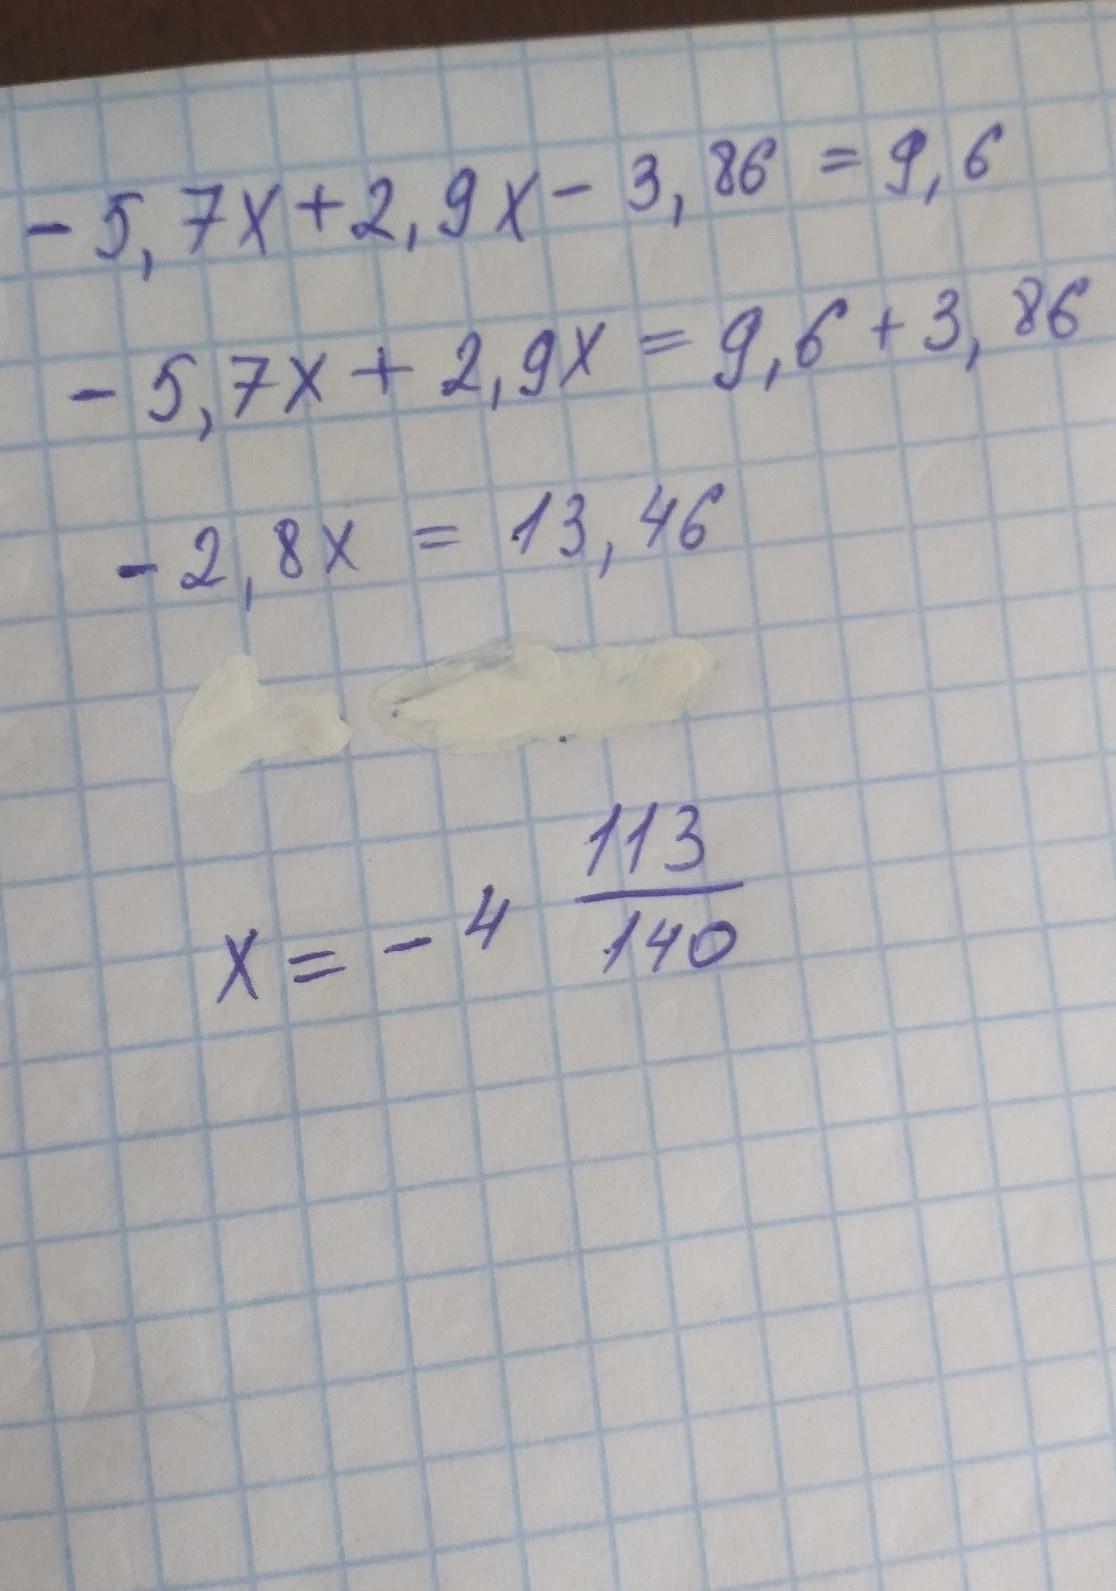 - 5,7x + 2,9x - 3,86 = 9,6
- 5,7x + 2,9x = 9,6 + 3,86
- 2,8x = 13,46
x = - 4 113/140